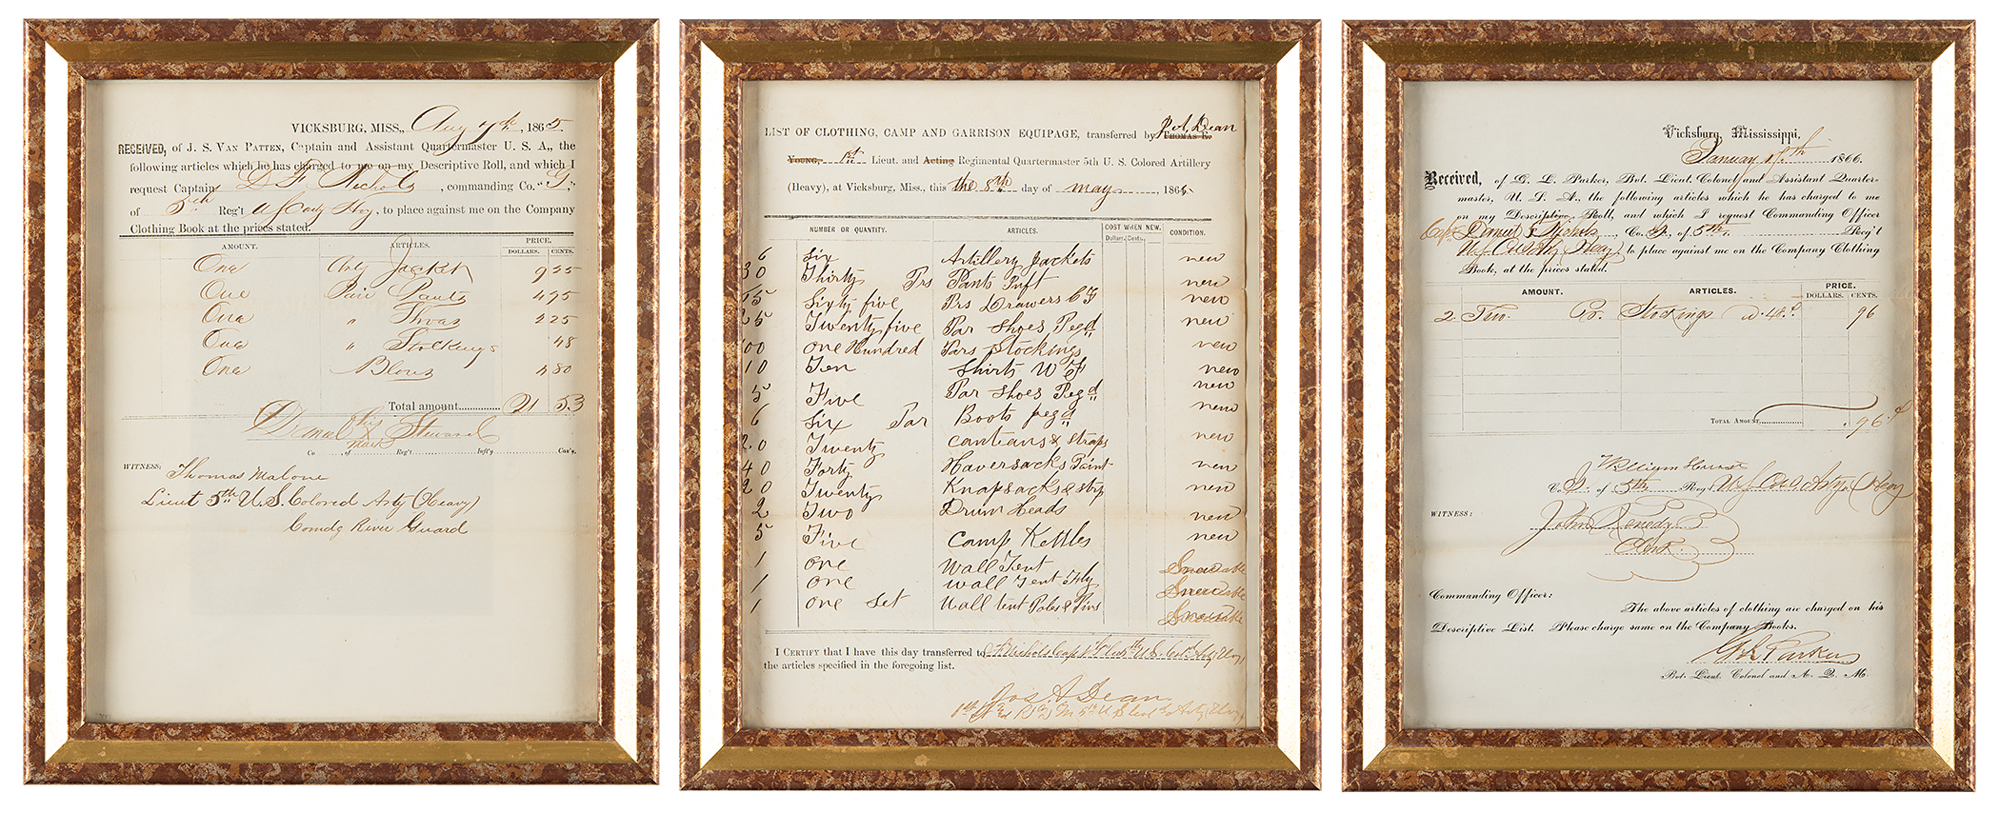 VICKSBURG, MISS., Aug 4th, 1865.
RECEIVED, of J. S. VAN PATTEN, Captain and Assistant Quartermaster U. S. A., the
following articles which he has charged to me on my Descriptive Roll, and which I
request Captain D F Nichols, commanding Co. "G,"
of 5th Reg't U S Cold Hvy, to place against me on the Company
Clothing Book at the prices stated.
AMOUNT. ARTICLES. PRICE.
DOLLARS. CENTS.
One Arty Jacket 9 25
One Pair Pants 4 75
One " 2 25
One " Stockings 48
One Blous 4 80
Total amount 21 53
his
Stward
mark
Co of Reg't Inft'y Cav'y.
WITNESS: Thomas Malone
Lieut 5th U.S. Colored Arty (Heavy)
Comdg River Guard
LIST OF CLOTHING, CAMP AND GARRISON EQUIPAGE, transferred by THOMAS E. Jos A. Dean
YOUNG, 1st Lieut. and Acting Regimental Quartermaster 5th U. S. Colored Artillery
(Heavy), at Vicksburg, Miss., this the 8th day of may, 186
NUMBER OR QUANTITY. ARTICLES. COST WHEN NEW. CONDITION.
Dollars. Cents.
6 Six Artillery Jackets new
30 Thirty Prs Pants Fuft new
65 Sixty five Prs Drawers C F new
25 Twenty five Par Shoes Pegd new
100 One Hundred Pars Stockings new
10 Ten Shirts W F new
5 Five Par Shoes Pegd new
6 Six Par Boots pegd new
20 Twenty canteans & straps new
40 Forty Haversacks Paint new
20 Twenty Knapsacks & strp new
2 Two Drum heads new
5 Five Camp Kettles new
1 One Wall Tent
1 One wall Tent Fly
1 One Set Wall tent Poles & Pins
I CERTIFY that I have this day transferred to Nichols Capt 5th U.S. Col Arty Hvy
the articles specified in the foregoing list.
Jos A. Dean
1st Lt R Q M 5th U S Cold Arty (Hvy)
Vicksburg, Mississippi,
January 17th 1866.
Received, of G. L. Parker, Bvt. Lieut. Colonel and Assistant Quarter-
master, U. S. A., the following articles which he has charged to me
on my Descriptive Roll, and which I request Commanding Officer
Capt Daniel F Nichols, Co. G, of 5th Reg't
U S Cold Arty Hvy, to place against me on the Company Clothing
Book, at the prices stated.
AMOUNT. ARTICLES. PRICE.
DOLLARS. CENTS.
2 Two Pr. Stockings 48 96
TOTAL AMOUNT, 96
William
Co. G. of 5th Reg't U S Cold Arty (Hvy
WITNESS: John Kenedy
Clerk
Commanding Officer:
The above articles of clothing are charged on his
Descriptive List. Please charge same on the Company Books.
G L Parker
Bvt. Lieut. Colonel and A. Q. M.